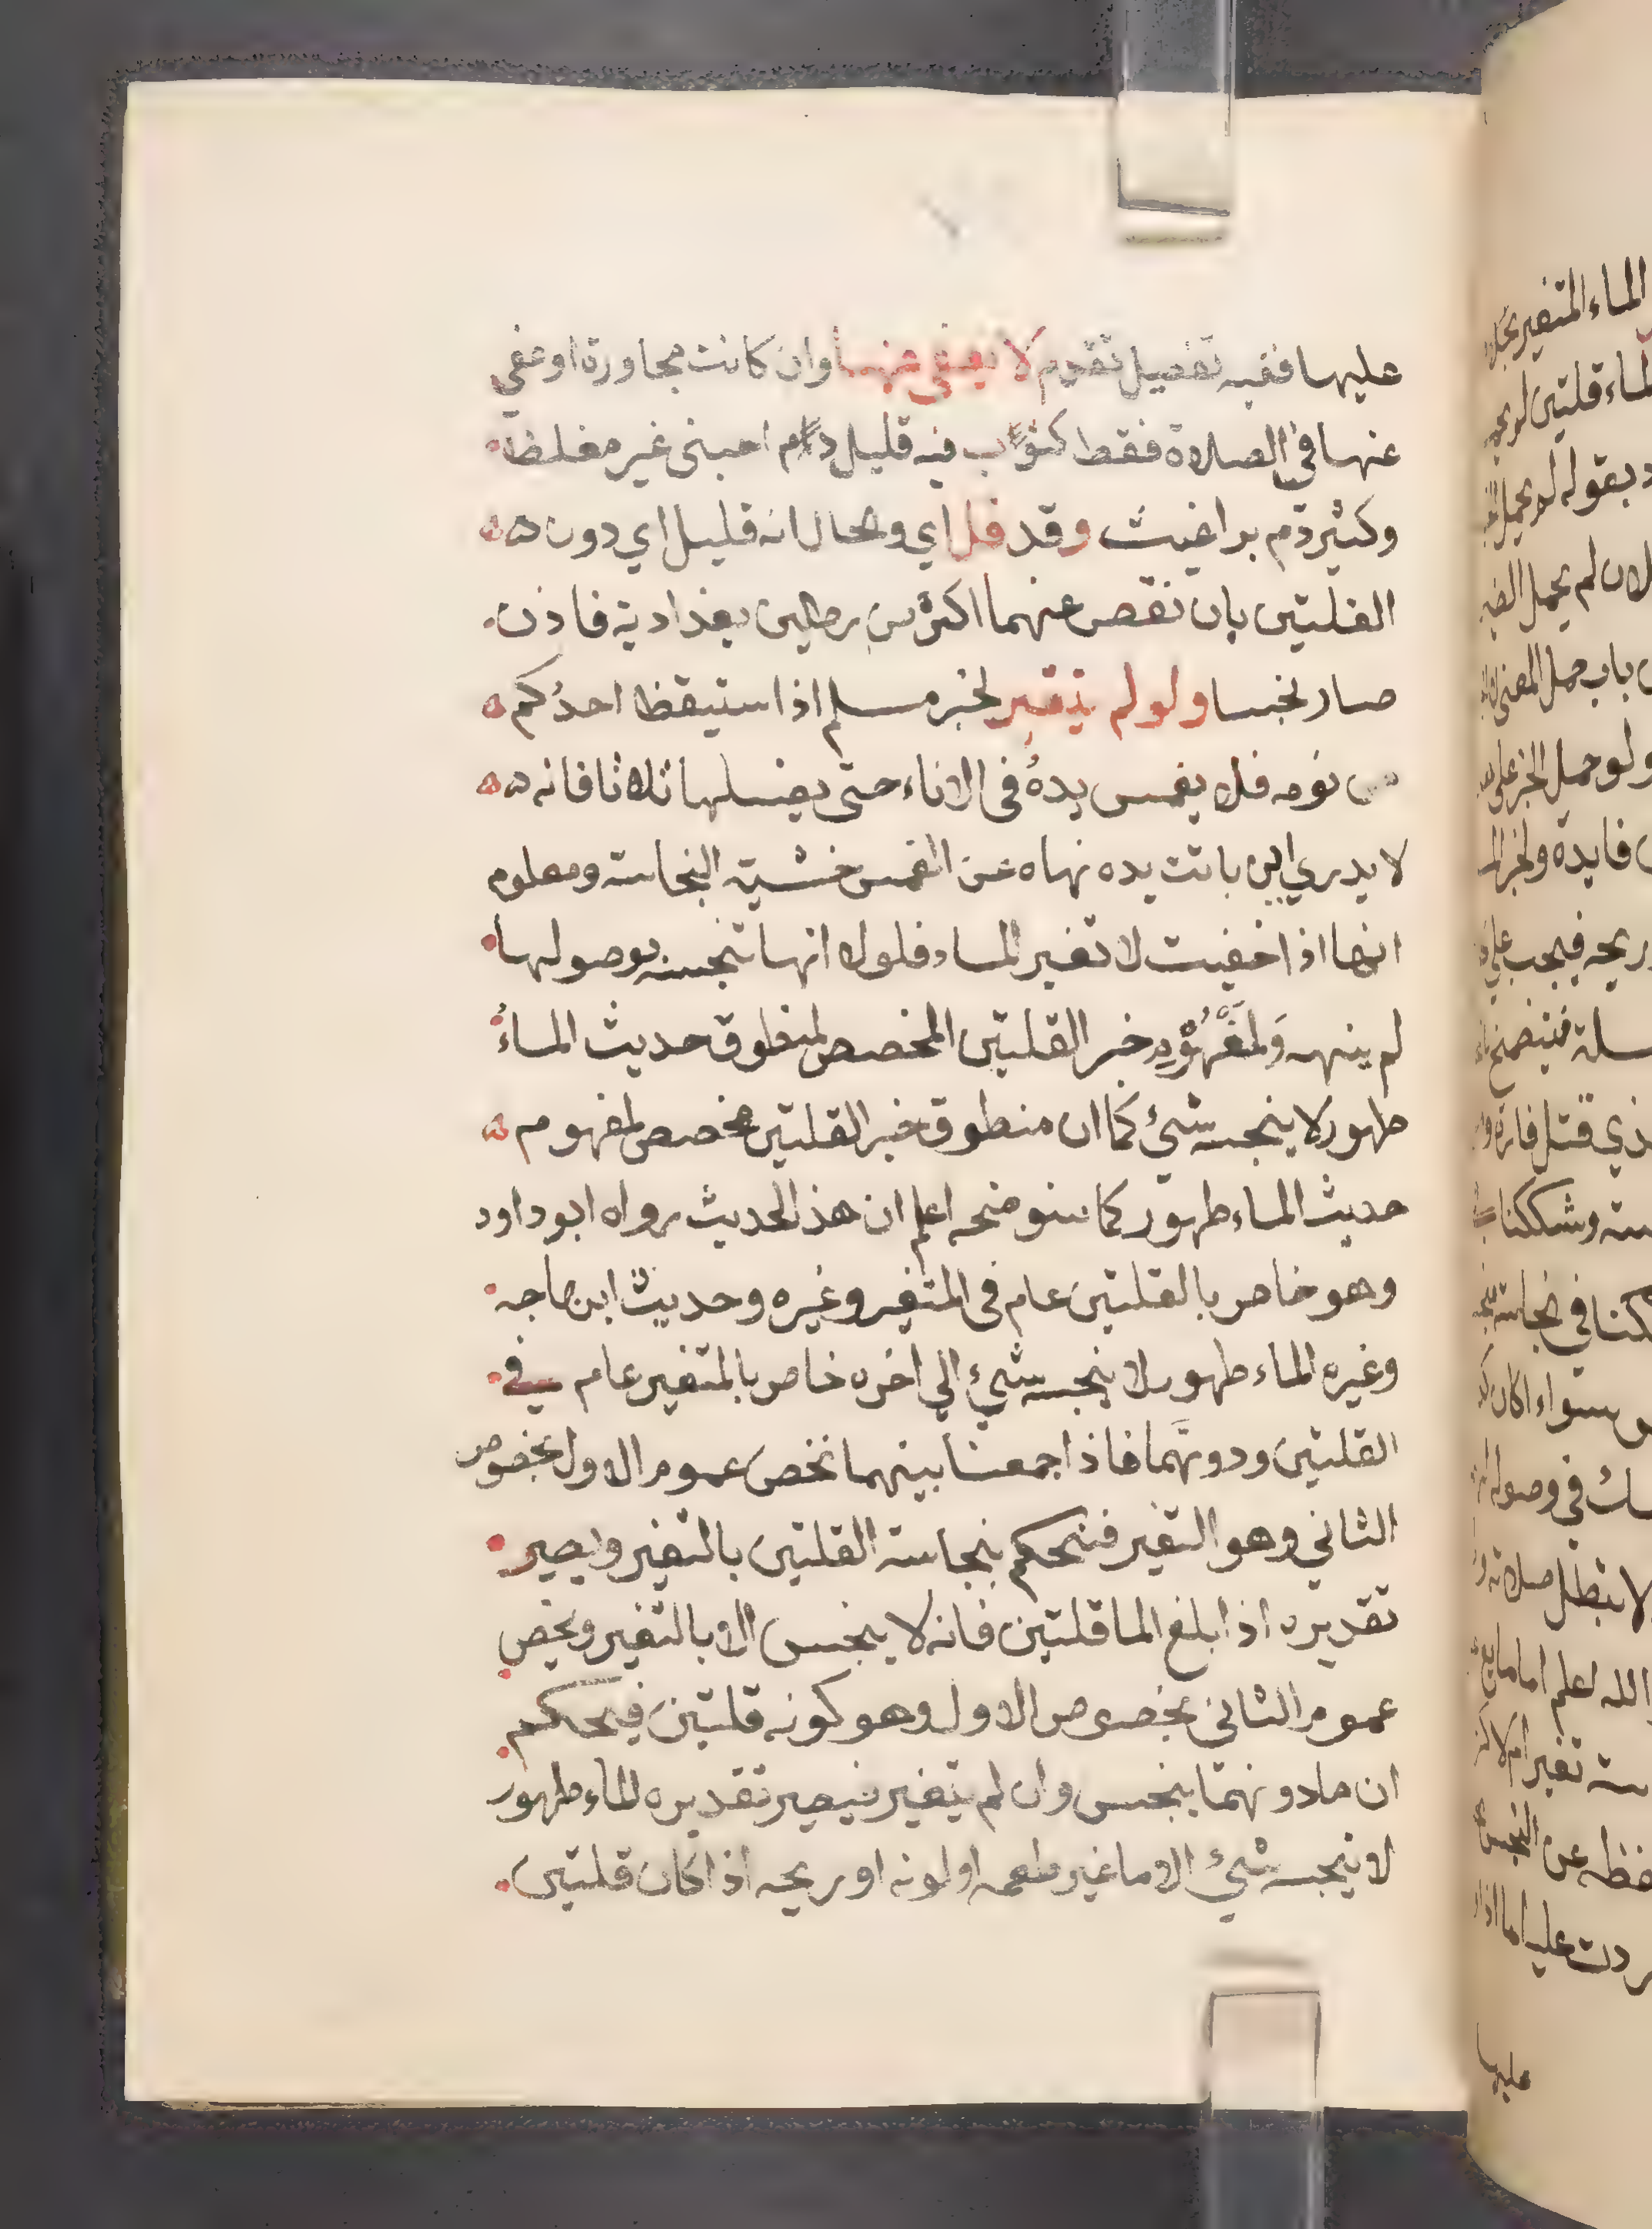 عليها ففيه تفصيل تقدم لا يعفى عنها وان كانت مجاورة او عفي
عنها في الصلاة فقط كثوب فيه قليل دم اجنبى غير مغلظ
وكثير دم براغيث وقد قل اي والحال انه قليل اي دون
القلتين بان نقص عنهما اكثر من رطلين بغدادية فاذن
صار نجسا ولو لم يتغير لخبر مسلم اذا استيقظ احدكم
من نومه فلا يغمس يده في الاناء حتى يغسلها ثلاثا فانه
لا يدري اين باتت يده نهاه عن الغمس خشية النجاسة ومعلوم
انها اذا خفيت لا تغير الماء فلولا انها تنجسه بوصولها
لم ينهه ولمفهوم خبر القلتين المخصص لمنطوق حديث الماء
طهور لا ينجسه شئ كما ان منطوق خبر القلتين مخصص لمفهوم
حديث الماء طهور كما سنوضحه اعلم ان هذا الحديث رواه ابو داود
وهو خاص بالقلتين عام في المتغير وغيره وحديث ابن ماجه
وغيره الماء طهور لا ينجسه شئ الي اخره خاص بالمتغير عام في
القلتين ودونهما فاذا جمعنا بينهما نخص عموم الاول بخصوص
الثاني وهو التغير فنحكم بنجاسة القلتين بالتغير ويصير
تقديره اذا بلغ الما قلتين فانه لا ينجس الا بالتغير ونخص
عموم الثاني بخصوص الاول وهو كونه قلتين فيحكم
ان ما دونهما ينجس وان لم يتغير فيصير تقديره الماء طهور
لا ينجسه شئ الا ما غير طعمه او لونه او ريحه اذا كان قلتين